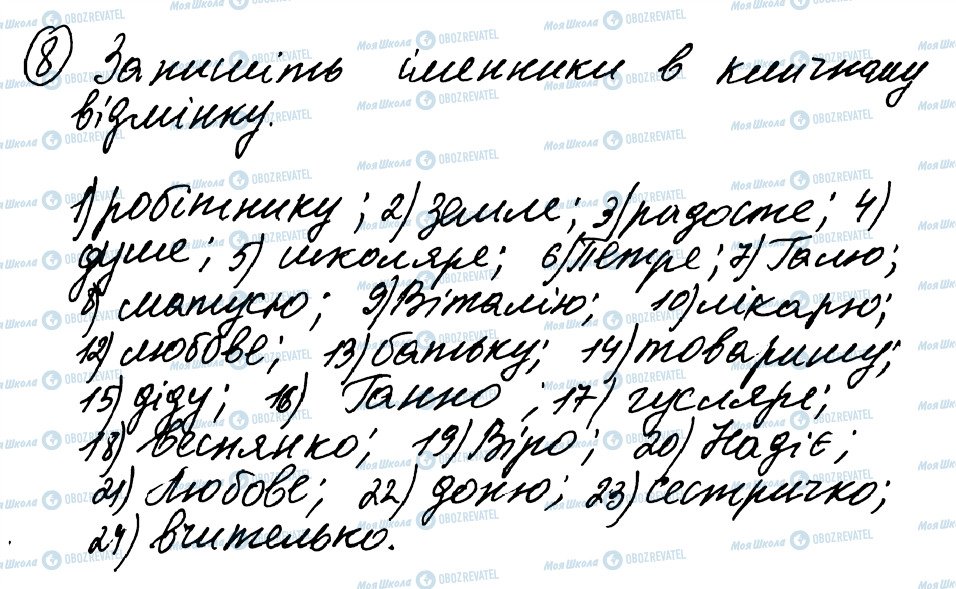 8 Запишіть іменники в кличному
відмінку.
1) робітнику; 2) земле; 3) радосте; 4)
душе; 5) школяре; 6) Петре; 7) Галю;
8) матусю; 9) Віталію; 10) лікарю;
12) любове; 13) батьку; 14) товаришу;
15) діду; 16) Ганно; 17) гусляре;
18) веснянко; 19) Віро; 20) Надіє;
21) Любове; 22) доню; 23) сестричко;
24) вчителько.
МояШкола OBOZREVATEL